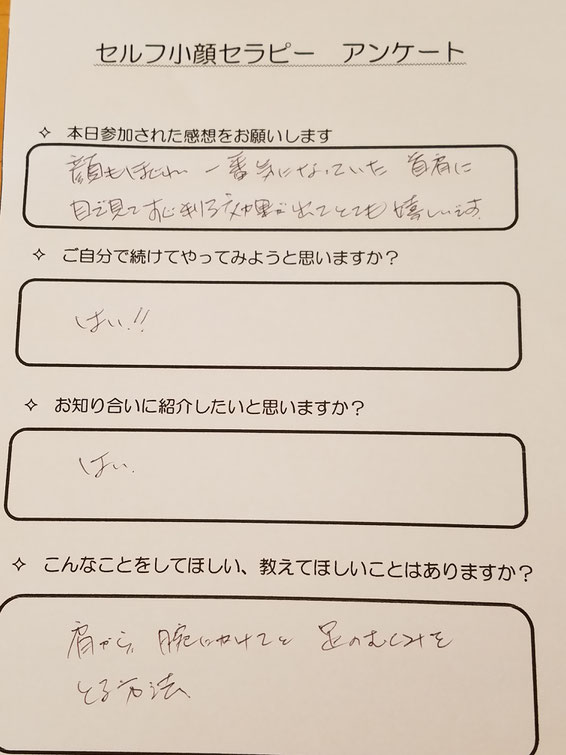 セルフ小顔セラピー　アンケート
✧ 本日参加された感想をお願いします
顔もほぐれ 一番気になっていた 首肩に
目で見てすぐ判る効果が出てとても嬉しいです。
✧ ご自分で続けてやってみようと思いますか？
はい!!
✧ お知り合いに紹介したいと思いますか？
はい.
✧ こんなことをしてほしい、教えてほしいことはありますか？
肩から 腕にかけてと 足のむくみを
とる方法